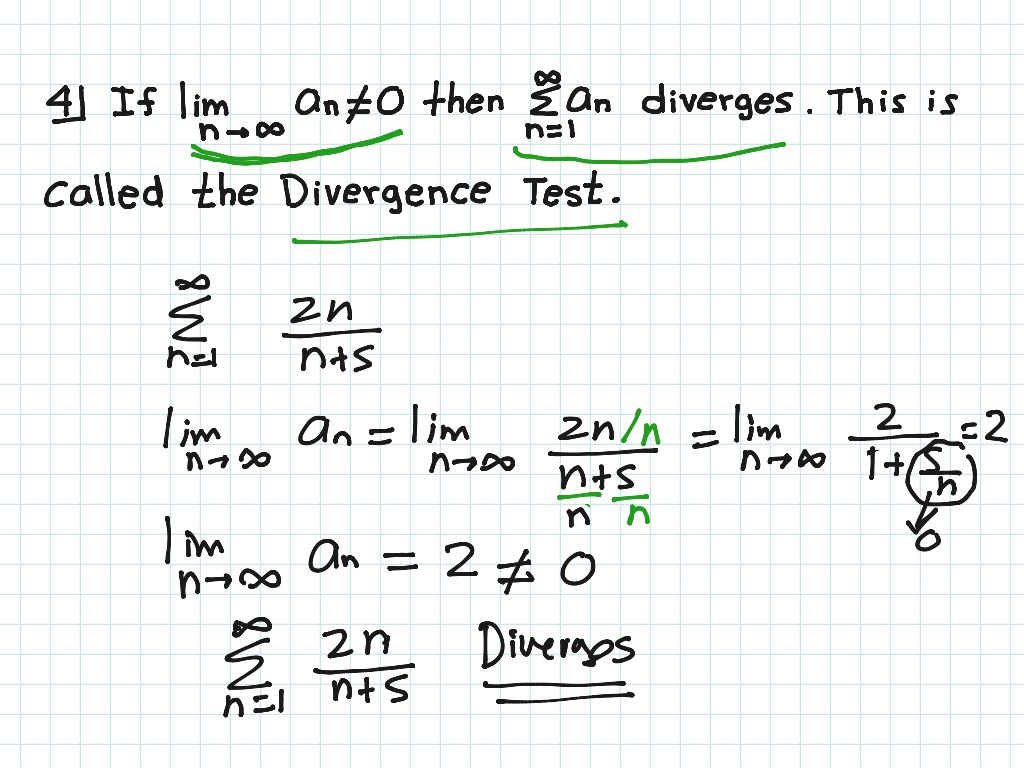 4) If lim n→∞ an ≠ 0 then ∑ n=1 ∞ an diverges. This is
called the Divergence Test.
∑ n=1 ∞ 2n/(n+5)
lim n→∞ an = lim n→∞ (2n/n)/(n/n + 5/n) = lim n→∞ 2/(1 + 5/n) = 2
0
lim n→∞ an = 2 ≠ 0
∑ n=1 ∞ 2n/(n+5) Diverges